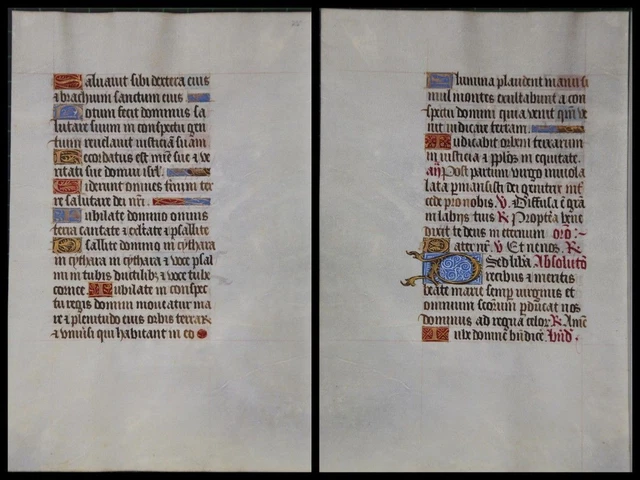 Saluavit sibi dextera eius
& brachium sanctum eius
Notum fecit dominus sa
lutare suum in conspectu gen
tium revelavit iusticiã suam
Recordatus est mr̃e sue & ve
ritati sue domui isrl̃.
Viderunt omnes tr̃mini ter
re salutare dei nr̃i.
Iubilate domino omnis
terra cantate & exltate & psallite
Psallite domino in cythara
in cythara in cythara & voce psal
mi in tubis ductilib; & voce tube
cornee. Iubilate in conspec
tu regis domini moveatur ma
re & plenitudo eius orbis terrarũ
& vniṽsi qui habitant in eo
Flumina plaudent manu si
mul montes exultabunt a con
spectu domini quia venit qm̃ ve
nit iudicare terram.
Iudicabit orbem terrarum
in iusticia & ppl̃os in equitate.
añ Post partum virgo inviola
lata pr̃mansisti dei genitrix int̃
cede pro nobis. V. Diffusa ẽ grã
in labijs tuis R Propterea bñe
dixit te deus in eternum oro:-
Pater nr̃. V Et ne nos. R
Sed liba. Absolutõ
Precibus & meritis
beate marie semp̃ virginis et
omnium sc̃orum p̃ducat nos
dominus ad regna celor̃ R. Amẽ
Iube domne bñdice. bñd.